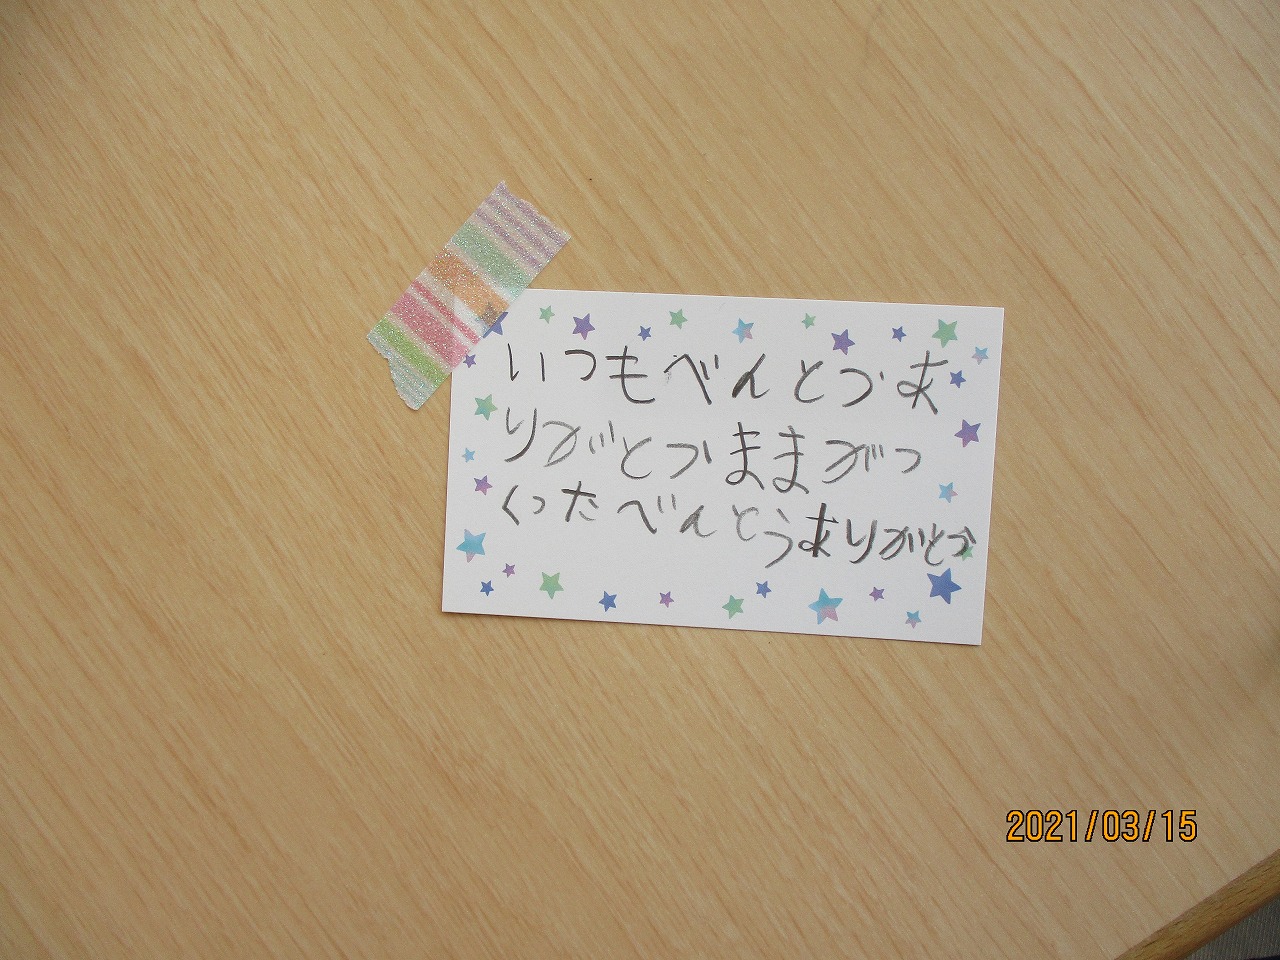 いつもべんとうあ
りがとうままがつ
くったべんとうありがとう
2021/03/15